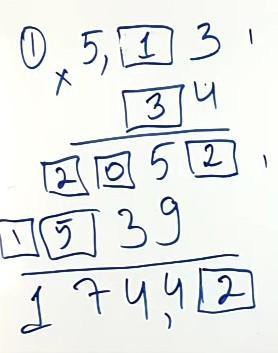 ① 5,13
× 34
2052
1539
174,42